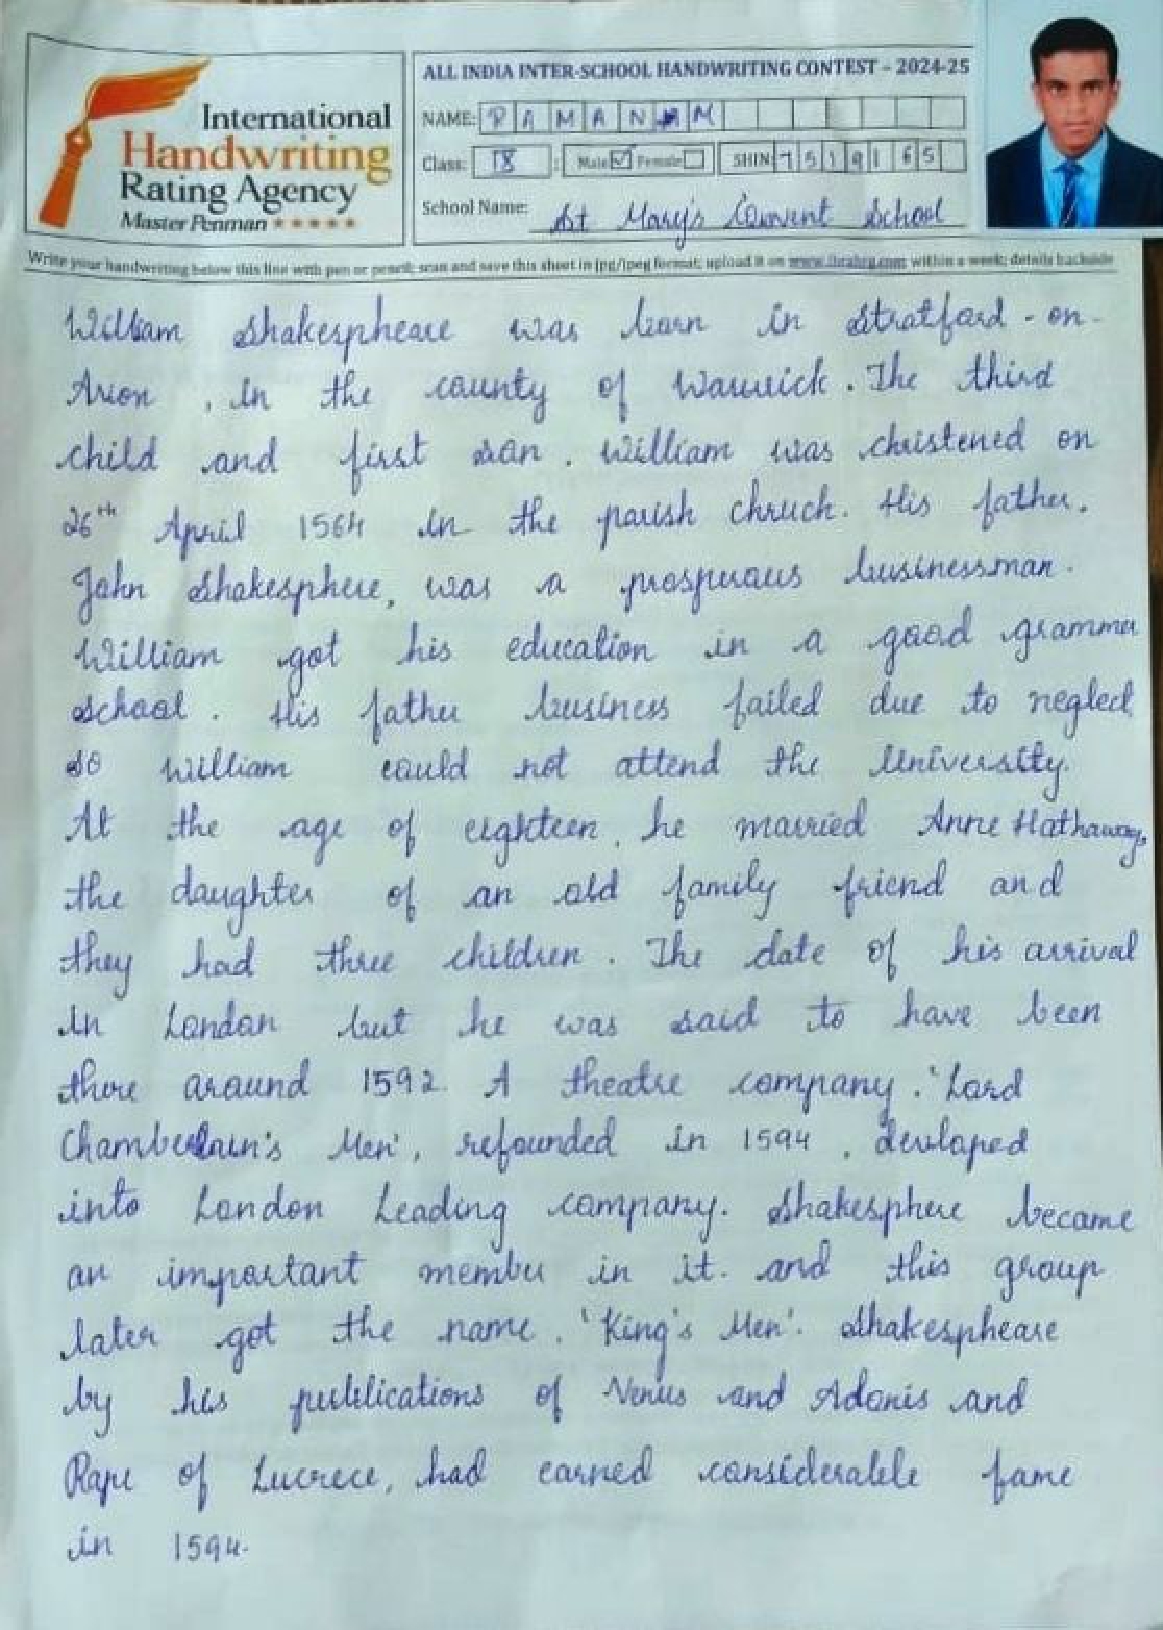 International
Handwriting
Rating Agency
Master Penman
ALL INDIA INTER-SCHOOL HANDWRITING CONTEST - 2024-25
NAME:
Class: IX Male Female SHIN: 7519165
School Name: St Mary's Convent School
Write your handwriting below this line with pen or pencil; scan and save this sheet in jpg/jpeg format; upload it on www.ihrahrg.com within a week; details backside
William Shakespheare was born in Stratford - on -
Avon , in the county of Warwick . The third
child and first son . William was christened on
26th April 1564 in the parish chruch. His father.
John Shakesphere, was a prosperous businessman.
William got his education in a good grammer
school . His father business failed due to neglect
so William could not attend the University.
At the age of eighteen, he married Anne Hathaway,
the daughter of an old family friend and
they had three children . The date of his arrival
in London but he was said to have been
there around 1592. A theatre company . 'Lord
Chamberlain's Men', refounded in 1594 , devloped
into London Leading company. Shakesphere became
an important member in it. and this group
later got the name . 'King's Men'. Shakespheare
by his publications of Venus and Adonis and
Rape of Lucrece, had earned considerable fame
in 1594.